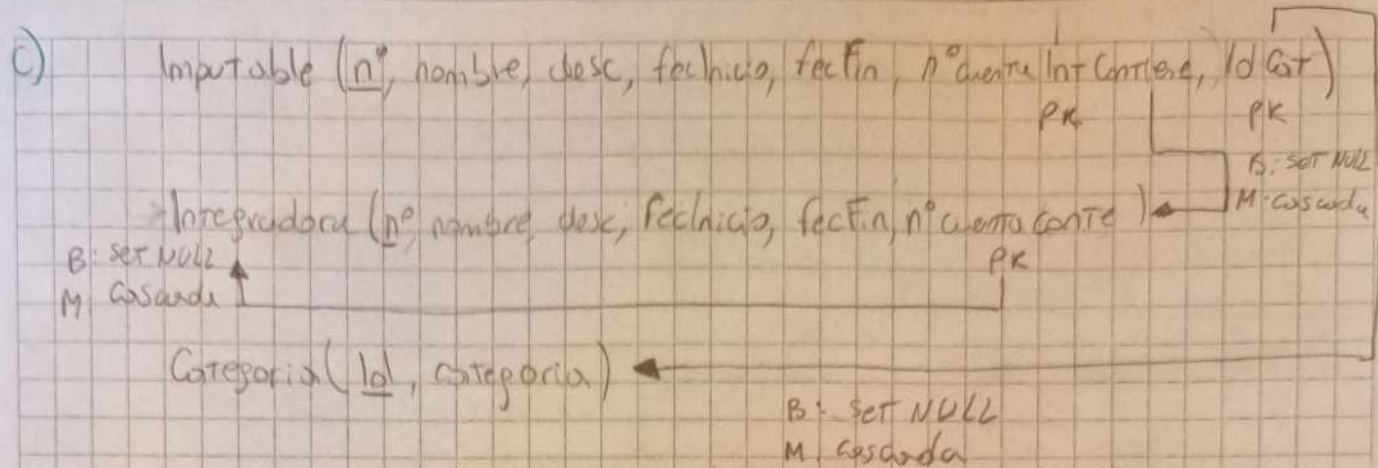 C) Imputable (nº, nombre, desc, fecInicio, fecFin, nº cuenta Int Contiene, Id Cat)
PK PK
B: SET NULL
M: Cascada
Integradora (nº, nombre, desc, fecInicio, fecFin, nº cuenta conte)
B: SET NULL PK
M: Cascada
Categoria (Id, categoria)
B: SET NULL
M: Cascada